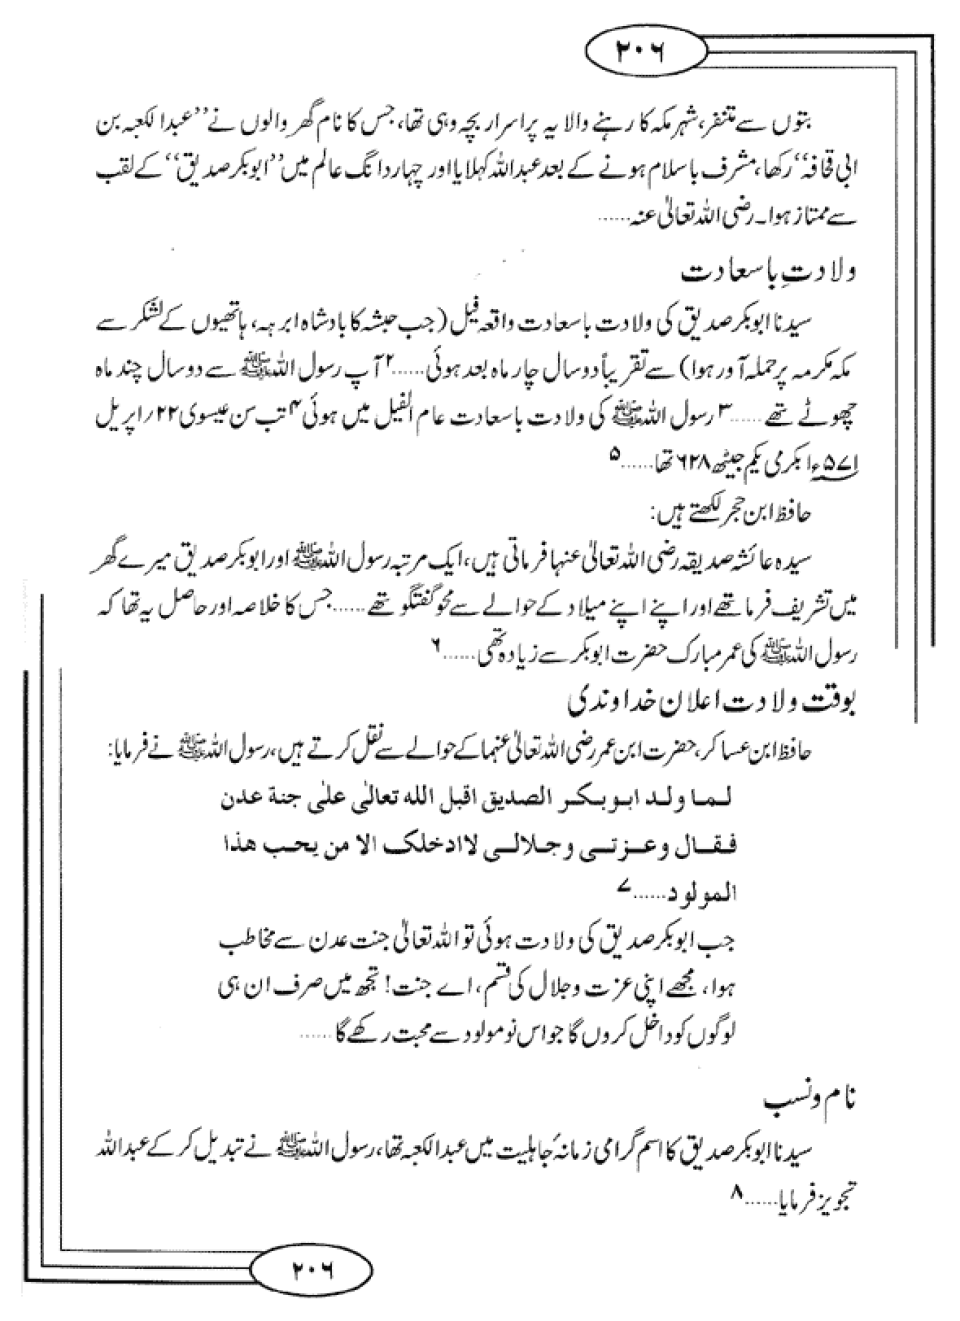 ۲۰۶
بتوں سے متنفر، شہر مکہ کا رہنے والا یہ پراسرار بچہ وہی تھا، جس کا نام گھر والوں نے ’’عبد الکعبہ بن
ابی قحافہ‘‘ رکھا، مشرف باسلام ہونے کے بعد عبداللہ کہلایا اور چہار دانگ عالم میں ’’ابوبکر صدیق‘‘ کے لقب
سے ممتاز ہوا۔ رضی اللہ تعالیٰ عنہ......
ولادتِ باسعادت
سیدنا ابوبکر صدیق کی ولادت باسعادت واقعہ فیل (جب حبشہ کا بادشاہ ابرہہ، ہاتھیوں کے لشکر سے
مکہ مکرمہ پر حملہ آور ہوا) سے تقریباً دو سال چار ماہ بعد ہوئی......۲ آپ رسول اللہ ﷺ سے دو سال چند ماہ
چھوٹے تھے......۳ رسول اللہ ﷺ کی ولادت باسعادت عام الفیل میں ہوئی ۴ تب سن عیسوی ۲۲/اپریل
۵۷۱ء بکرمی یکم جیٹھ ۶۲۸ تھا......۵
حافظ ابن حجر لکھتے ہیں:
سیدہ عائشہ صدیقہ رضی اللہ تعالیٰ عنہا فرماتی ہیں، ایک مرتبہ رسول اللہ ﷺ اور ابوبکر صدیق میرے گھر
میں تشریف فرما تھے اور اپنے اپنے میلاد کے حوالے سے محو گفتگو تھے......جس کا خلاصہ اور حاصل یہ تھا کہ
رسول اللہ ﷺ کی عمر مبارک حضرت ابوبکر سے زیادہ تھی......۶
بوقت ولادت اعلان خداوندی
حافظ ابن عساکر، حضرت ابن عمر رضی اللہ تعالیٰ عنہما کے حوالے سے نقل کرتے ہیں، رسول اللہ ﷺ نے فرمایا:
لما ولد ابوبکر الصدیق اقبل الله تعالیٰ علی جنة عدن
فقال وعزتی وجلالی لاادخلک الا من یحب هذا
المولود......۷
جب ابوبکر صدیق کی ولادت ہوئی تو اللہ تعالیٰ جنت عدن سے مخاطب
ہوا، مجھے اپنی عزت و جلال کی قسم، اے جنت! تجھ میں صرف ان ہی
لوگوں کو داخل کروں گا جو اس نومولود سے محبت رکھے گا......
نام و نسب
سیدنا ابوبکر صدیق کا اسم گرامی زمانۂ جاہلیت میں عبدالکعبہ تھا، رسول اللہ ﷺ نے تبدیل کر کے عبداللہ
تجویز فرمایا......۸
۲۰۶